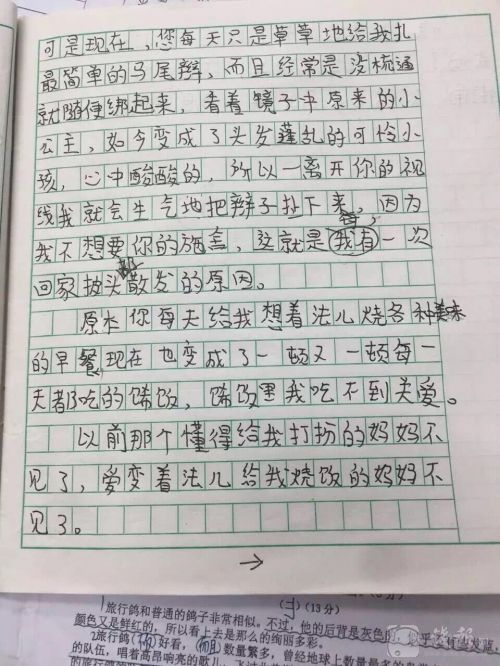 可是现在,您每天只是草草地给我扎
最简单的马尾辫,而且经常是没梳通
就随便绑起来,看着镜子中原来的小
公主,如今变成了头发蓬乱的可怜小
孩,心中酸酸的,所以一离开你的视
线我就会生气地把辫子扯下来,因为
我不想要你的施舍,这就是我有一次
回家披头散发的原因。
原本你每天给我想着法儿烧各种美味
的早餐现在也变成了一顿又一顿每一
天都吃的馊饭,馊饭里我吃不到关爱。
以前那个懂得给我打扮的妈妈不
见了,爱变着法儿给我烧饭的妈妈不
见了。
→
(二)(13分)
1旅行鸽和普通的鸽子非常相似。不过,他的后背是灰色的,
颜色又是鲜红的,所以看上去是那么的绚丽多彩。
2旅行鸽好看,数量繁多,曾经地球上数量最多的
的队伍,唱着高昂响亮的歌儿,